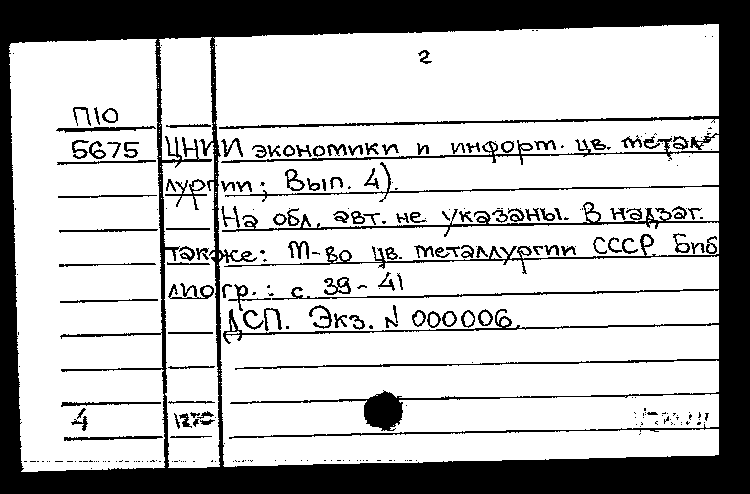 2
П10
5675 ЦНИИ экономики и информ. цв. метал
лургии; Вып. 4).
На обл. авт. не указаны. В надзаг.
также: М-во цв. металлургии СССР. Биб
лиогр.: с. 39-41
ДСП. Экз. № 000006.
4 1270